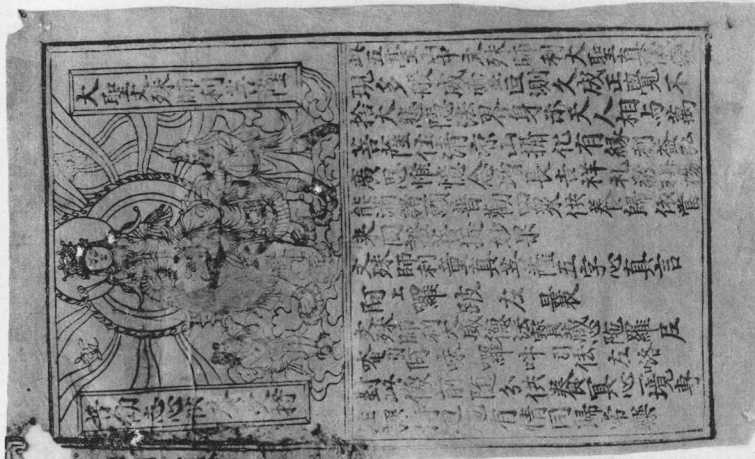 大聖文殊師利菩薩
普勸志心供養受持
此五臺山中文殊師利大聖真儀
現多般威靈叵測久成正覺不
捨大悲隱法界身示天人相與萬
菩薩住清涼山攝化有緣利益弘
廣思惟憶念增長吉祥禮敬稱揚
能滿諸願普勸四眾供養歸依當
來同證菩提妙果
文殊師利童真菩薩五字心真言
阿上囉跛左曩
文殊師利大威德法寶藏心陀羅尼
唵引阿味囉吽引佉左咯
對此像前隨分供養冥心一境專
注課持迴施有情同歸常樂